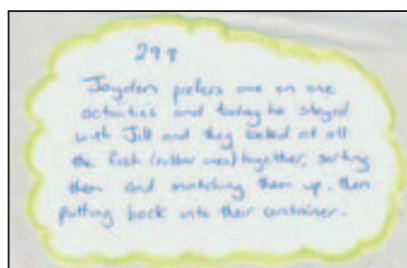 29.8
Jayden prefers one on one
activities and today he stayed
with Jill and they looked at all
the fish (rubber ones) together, sorting
them and matching them up, then
putting back into their container.